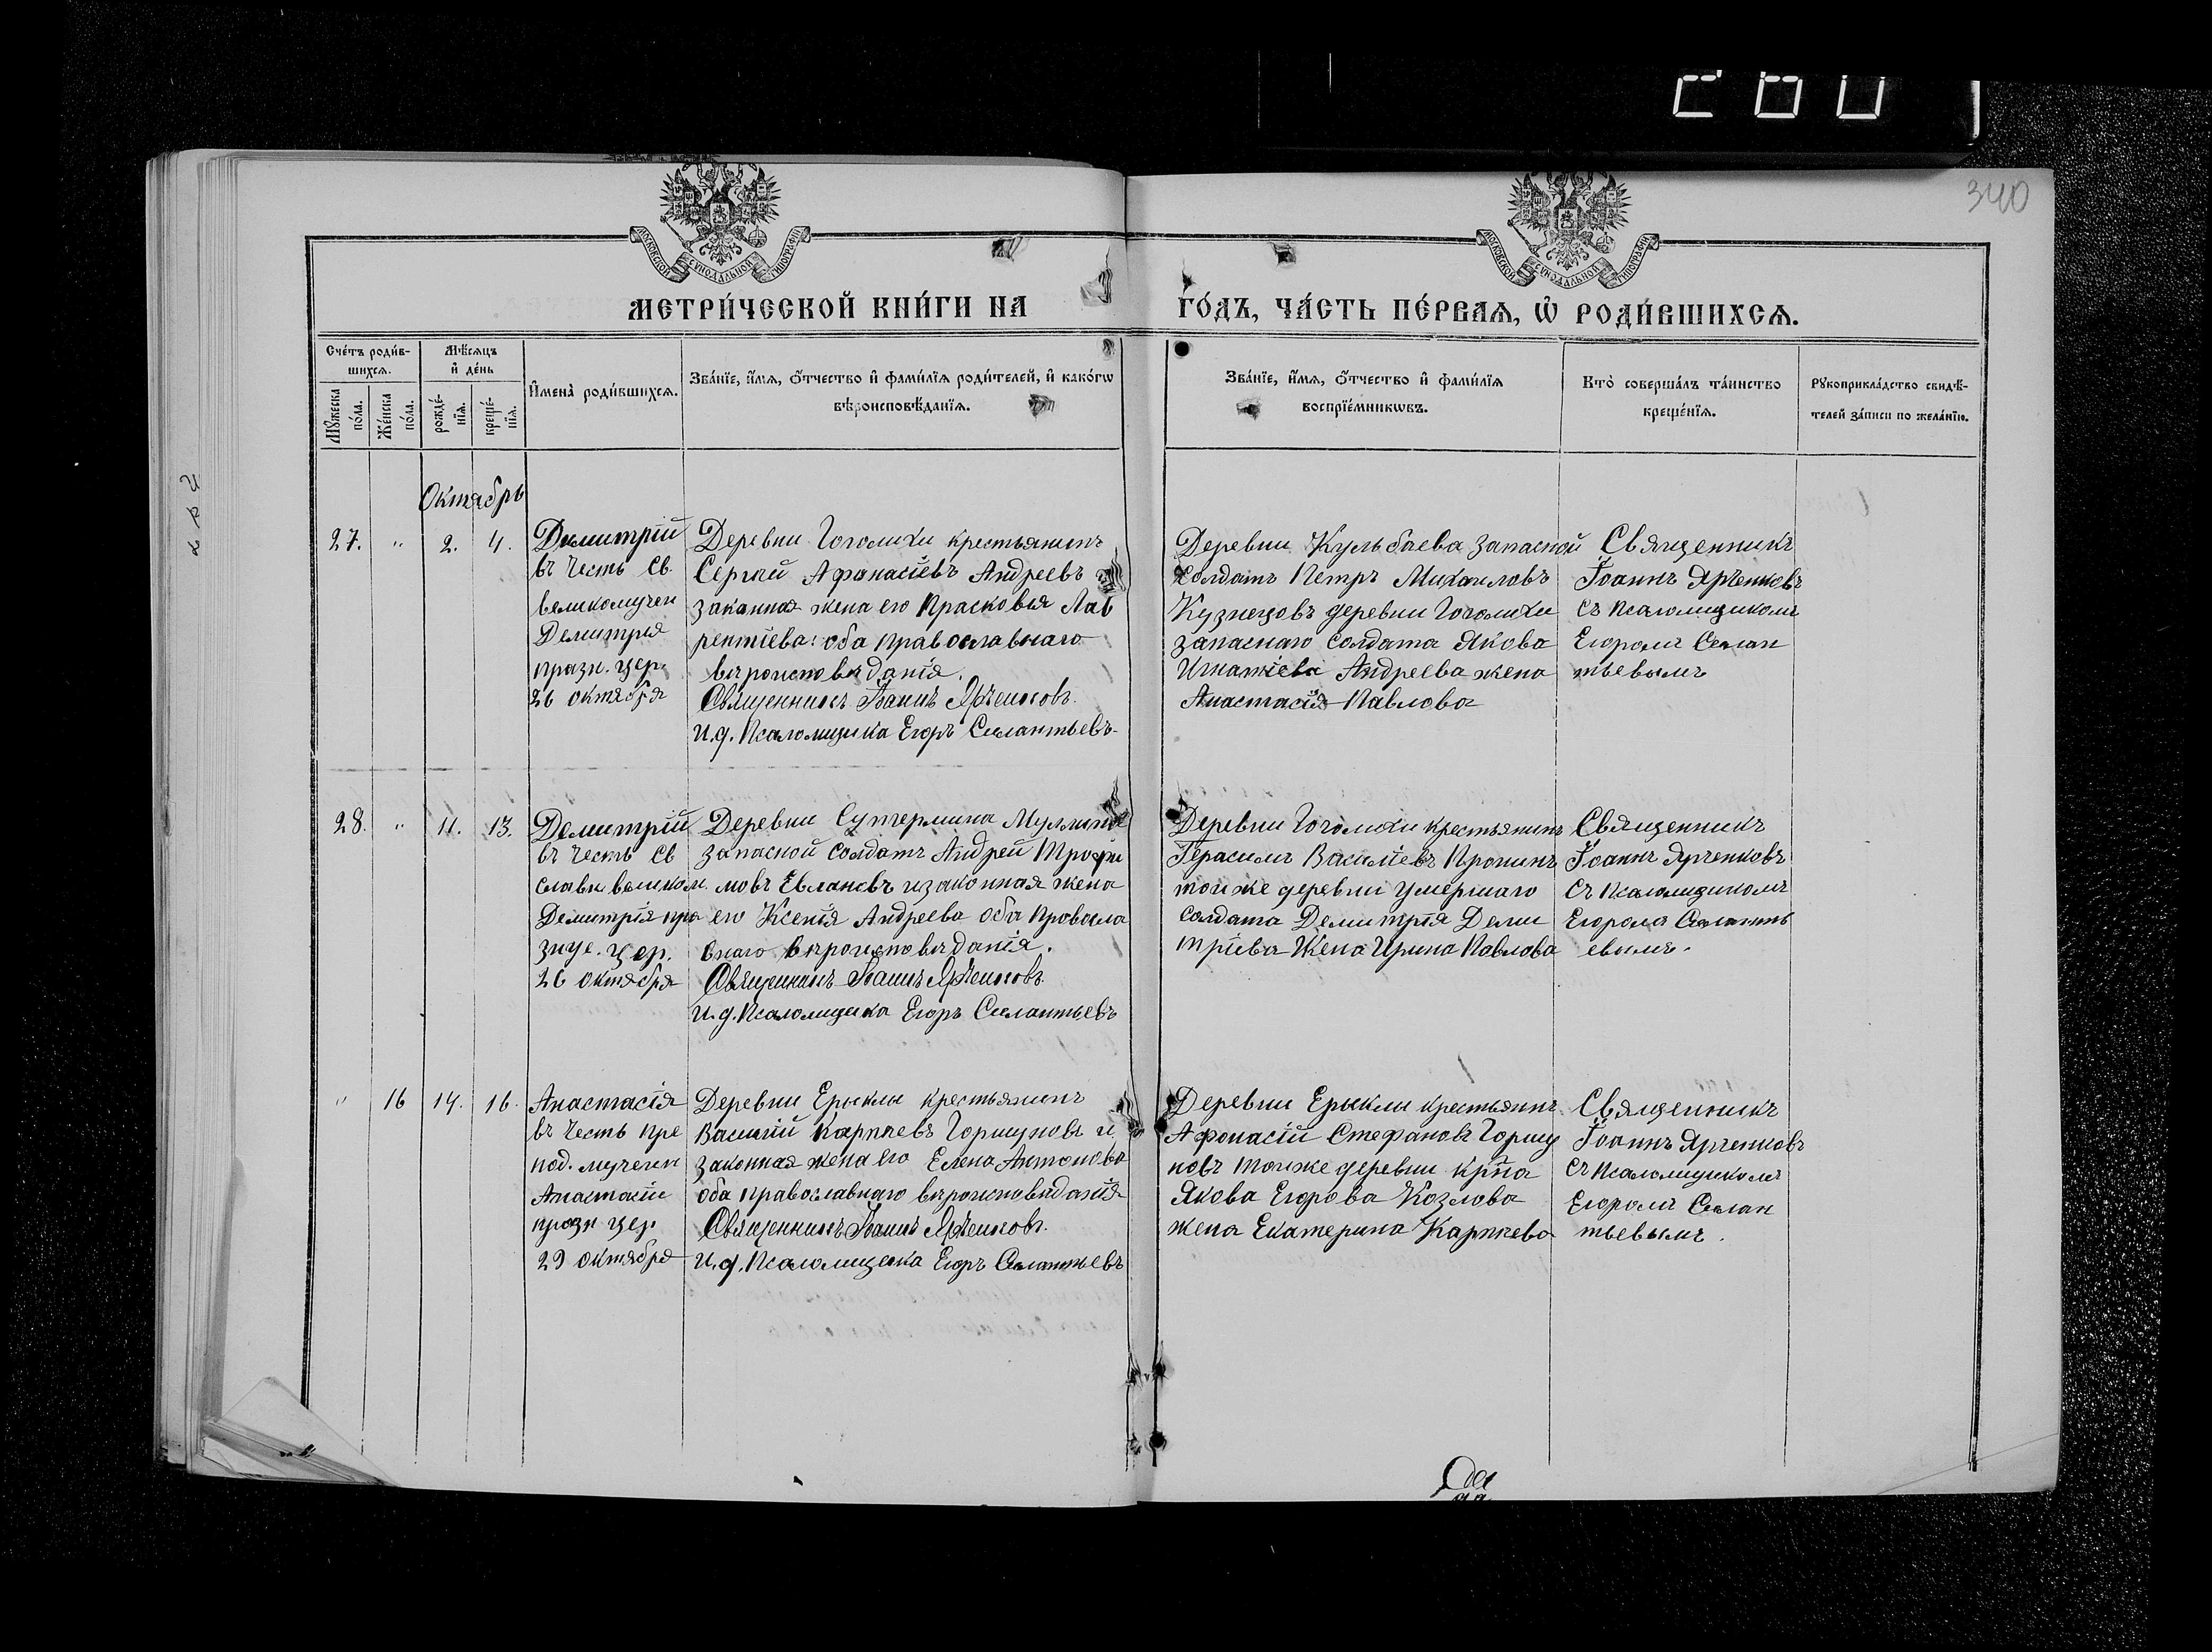 340
МОСКОВСКОЙ СѴНОДАЛЬНОЙ ТИПОГРАФІИ
МОСКОВСКОЙ СѴНОДАЛЬНОЙ ТИПОГРАФІИ
МЕТРИ́ЧЕСКОЙ КНИ́ГИ НА
ГО́ДЪ, ЧА́СТЬ ПЕ́РВАѦ, Ѽ РОДИ́ВШИХСѦ.
Сче́тъ роди́в-
шихсѧ.
Мꙋжеска по́ла.
Же́нска по́ла.
Мѣ́сѧцъ
и҆ де́нь
рожде́-нїѧ.
креще́-нїѧ.
И҆мена̀ роди́вшихсѧ.
Зва́нїе, и҆́мѧ, ѻ҆́тчество и҆ фами́лїѧ роди́телей, и҆ како́гѡ
вѣроисповѣ́данїѧ.
Зва́нїе, и҆́мѧ, ѻ҆́тчество и҆ фами́лїѧ
воспрїе́мникѡвъ.
Кто̀ соверша́лъ та́инство
креще́нїѧ.
Рꙋкоприкла́дство свидѣ́-
телей за́писи по жела́нїю.
Октябрь
27. " 2. 4.
Димитрій
въ честь Св.
великомучен
Димитрія
празн. цер.
26 октября
Деревни Гоголихи крестьянинъ
Сергей Афанасіевъ Андреевъ
законная жена его Прасковья Лав
рентіева: оба православнаго
вѣроисповѣданія.
Священникъ Іоаннъ Ярченковъ.
И.д. Псаломщика Егоръ Силантьевъ.
Деревни Кульбаева запасной
солдатъ Петръ Михаиловъ
Кузнецовъ деревни Гоголихи
запаснаго солдата Якова
Игнатіева Андреева жена
Анастасія Павлова
Священникъ
Іоаннъ Ярченковъ
съ Псаломщикомъ
Егоромъ Силан
тьевымъ
28. " 11. 13.
Димитрій
въ честь Св
славн великом.
Димитрія пра
знуе. цер.
26 октября
Деревни Сутермина
запасной солдатъ Андрей Трофи
мовъ Евланевъ и законная жена
его Ксенія Андреева оба правосла
внаго вѣроисповѣданія.
Священникъ Іоаннъ Ярченковъ.
И.д. Псаломщика Егоръ Силантьевъ
Деревни Гоголихи крестьянинъ
Герасимъ Василіевъ Пронинъ
той же деревни умершаго
солдата Димитрія Дими
тріева жена Ирина Павлова
Священникъ
Іоаннъ Ярченковъ
съ Псаломщикомъ
Егоромъ Силанть
евымъ.
" 16 14. 16.
Анастасія
въ честь пре
под. мучени
Анастасіи
празн цер
29 октября
Деревни Ерыклы крестьянинъ
Василій Карпѣевъ Горшуновъ и
законная жена его Елена Антонова
оба православнаго вѣроисповѣданія
Священникъ Іоаннъ Ярченковъ.
И.д. Псаломщика Егоръ Силантьевъ
Деревни Ерыклы крестьянинъ
Афонасій Стефановъ Горшу
новъ той же деревни крѣна
Якова Егорова Козлова
жена Екатерина Карпѣева
Священникъ
Іоаннъ Ярченковъ
съ Псаломщикомъ
Егоромъ Силан
тьевымъ.